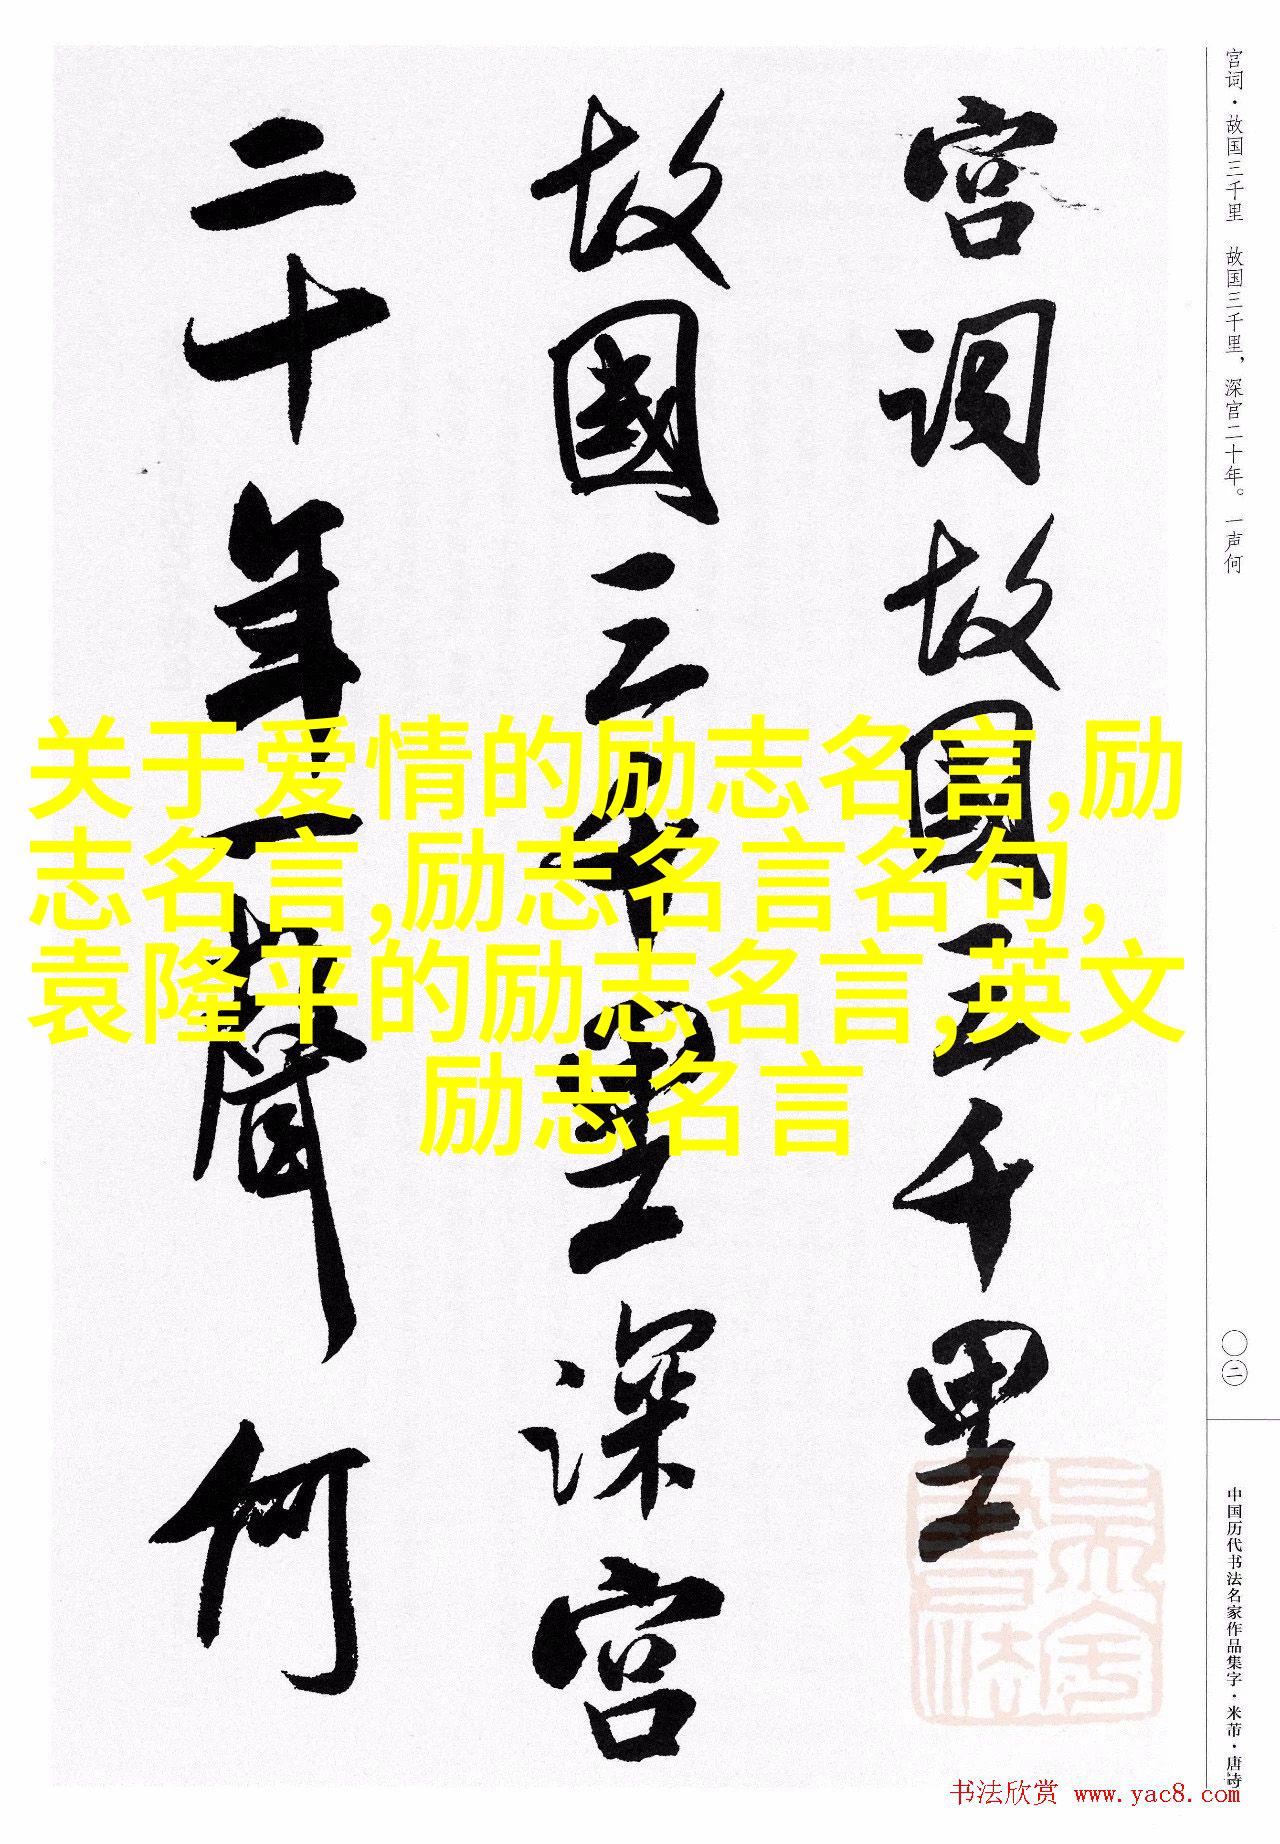 宫词故国三千里
故國三千里深宫
二十年一聲何
宫词·故国三千里 故国三千里，深宫二十年。一声何
〇二
中国历代书法名家作品集字·米芾·唐诗
关于爱情的励志名言,励
志名言,励志名言名句,
袁隆平的励志名言,英文
励志名言
书法欣赏 www.yac8.com